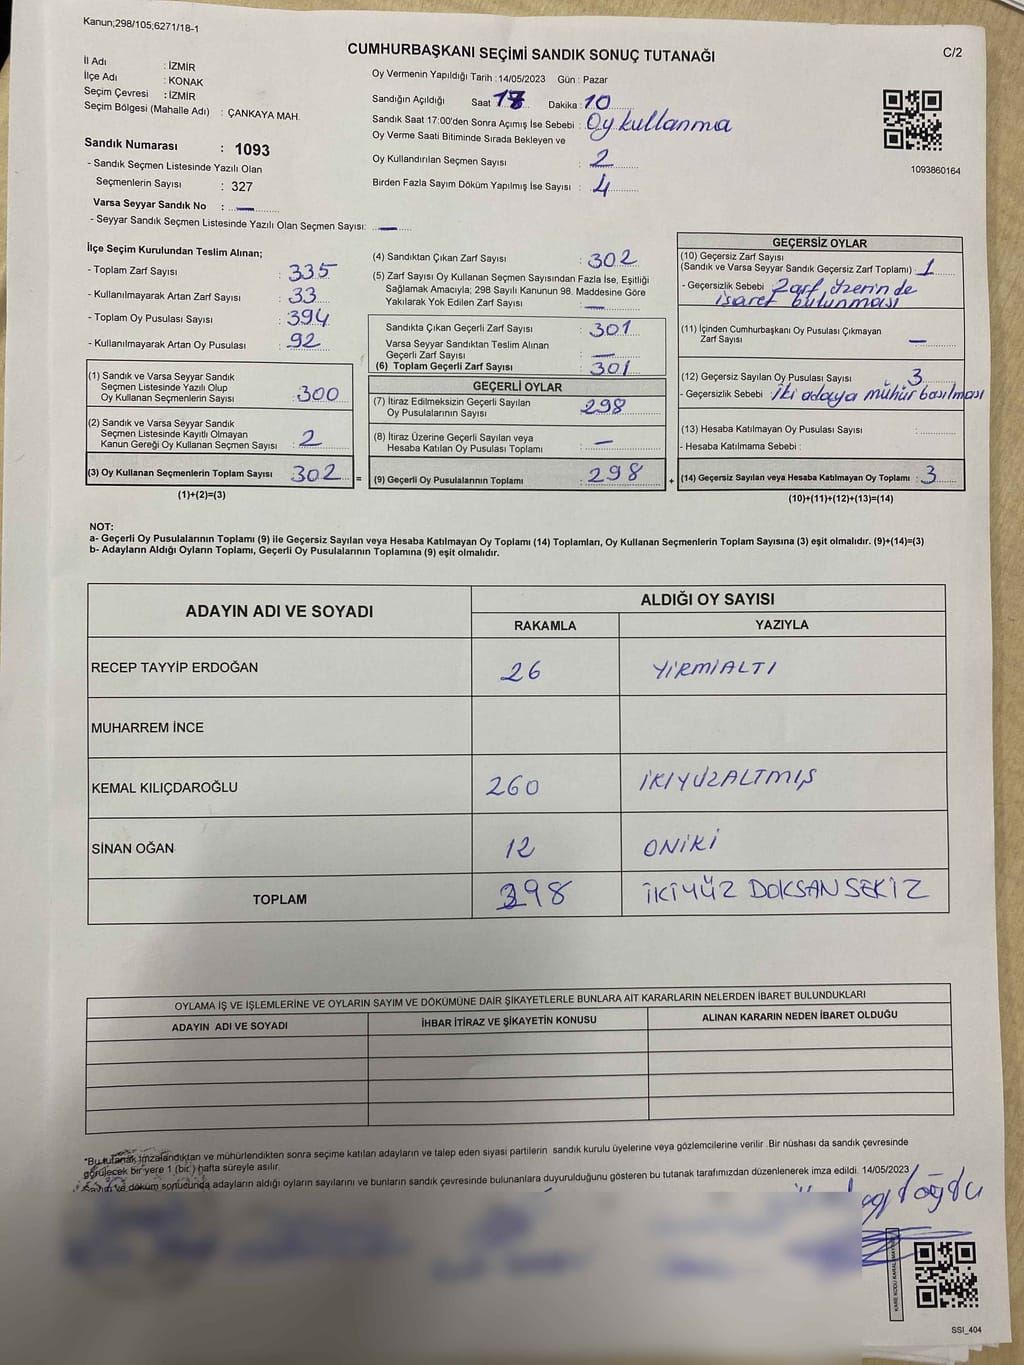 Kanun;298/105;6271/18-1
CUMHURBAŞKANI SEÇİMİ SANDIK SONUÇ TUTANAĞI
C/2
İl Adı : İZMİR
İlçe Adı : KONAK
Seçim Çevresi : İZMİR
Seçim Bölgesi (Mahalle Adı) : ÇANKAYA MAH.
Sandık Numarası : 1093
- Sandık Seçmen Listesinde Yazılı Olan
Seçmenlerin Sayısı : 327
Varsa Seyyar Sandık No : —
- Seyyar Sandık Seçmen Listesinde Yazılı Olan Seçmen Sayısı: —
Oy Vermenin Yapıldığı Tarih : 14/05/2023 Gün : Pazar
Sandığın Açıldığı Saat 17 Dakika : 10
Sandık Saat 17:00'den Sonra Açımış İse Sebebi : Oy kullanma
Oy Verme Saati Bitiminde Sırada Bekleyen ve
Oy Kullandırılan Seçmen Sayısı : 2
Birden Fazla Sayım Döküm Yapılmış İse Sayısı : 4
1093860164
İlçe Seçim Kurulundan Teslim Alınan;
- Toplam Zarf Sayısı : 335
- Kullanılmayarak Artan Zarf Sayısı : 33
- Toplam Oy Pusulası Sayısı : 394
- Kullanılmayarak Artan Oy Pusulası : 92
(1) Sandık ve Varsa Seyyar Sandık
Seçmen Listesinde Yazılı Olup
Oy Kullanan Seçmenlerin Sayısı : 300
(2) Sandık ve Varsa Seyyar Sandık
Seçmen Listesinde Kayıtlı Olmayan
Kanun Gereği Oy Kullanan Seçmen Sayısı : 2
(3) Oy Kullanan Seçmenlerin Toplam Sayısı : 302
(1)+(2)=(3)
(4) Sandıktan Çıkan Zarf Sayısı : 302
(5) Zarf Sayısı Oy Kullanan Seçmen Sayısından Fazla İse, Eşitliği
Sağlamak Amacıyla; 298 Sayılı Kanunun 98. Maddesine Göre
Yakılarak Yok Edilen Zarf Sayısı : —
Sandıkta Çıkan Geçerli Zarf Sayısı : 301
Varsa Seyyar Sandıktan Teslim Alınan
Geçerli Zarf Sayısı : —
(6) Toplam Geçerli Zarf Sayısı : 301
GEÇERLİ OYLAR
(7) İtiraz Edilmeksizin Geçerli Sayılan
Oy Pusulalarının Sayısı : 298
(8) İtiraz Üzerine Geçerli Sayılan veya
Hesaba Katılan Oy Pusulası Toplamı : —
=
(9) Geçerli Oy Pusulalarının Toplamı : 298
+
GEÇERSİZ OYLAR
(10) Geçersiz Zarf Sayısı
(Sandık ve Varsa Seyyar Sandık Geçersiz Zarf Toplamı) : 1
- Geçersizlik Sebebi : Zarf üzerinde
işaret bulunması
(11) İçinden Cumhurbaşkanı Oy Pusulası Çıkmayan
Zarf Sayısı : —
(12) Geçersiz Sayılan Oy Pusulası Sayısı : 3
- Geçersizlik Sebebi : İki adaya mühür basılması
(13) Hesaba Katılmayan Oy Pusulası Sayısı :
- Hesaba Katılmama Sebebi :
(14) Geçersiz Sayılan veya Hesaba Katılmayan Oy Toplamı : 3
(10)+(11)+(12)+(13)=(14)
NOT:
a- Geçerli Oy Pusulalarının Toplamı (9) ile Geçersiz Sayılan veya Hesaba Katılmayan Oy Toplamı (14) Toplamları, Oy Kullanan Seçmenlerin Toplam Sayısına (3) eşit olmalıdır. (9)+(14)=(3)
b- Adayların Aldığı Oyların Toplamı, Geçerli Oy Pusulalarının Toplamına (9) eşit olmalıdır.
ADAYIN ADI VE SOYADI ALDIĞI OY SAYISI
RAKAMLA YAZIYLA
RECEP TAYYİP ERDOĞAN 26 YİRMİALTI
MUHARREM İNCE
KEMAL KILIÇDAROĞLU 260 İKİYÜZALTMIŞ
SİNAN OĞAN 12 ONİKİ
TOPLAM 298 İKİYÜZ DOKSAN SEKİZ
OYLAMA İŞ VE İŞLEMLERİNE VE OYLARIN SAYIM VE DÖKÜMÜNE DAİR ŞİKAYETLERLE BUNLARA AİT KARARLARIN NELERDEN İBARET BULUNDUKLARI
ADAYIN ADI VE SOYADI İHBAR İTİRAZ VE ŞİKAYETİN KONUSU ALINAN KARARIN NEDEN İBARET OLDUĞU
*Bu tutanak imzalandıktan ve mühürlendikten sonra seçime katılan adayların ve talep eden siyasi partilerin sandık kurulu üyelerine veya gözlemcilerine verilir .Bir nüshası da sandık çevresinde
görülecek bir yere 1 (bir ) hafta süreyle asılır.
Sayım ve döküm sonucunda adayların aldığı oyların sayılarını ve bunların sandık çevresinde bulunanlara duyurulduğunu gösteren bu tutanak tarafımızdan düzenlenerek imza edildi. 14/05/2023
SSİ_404